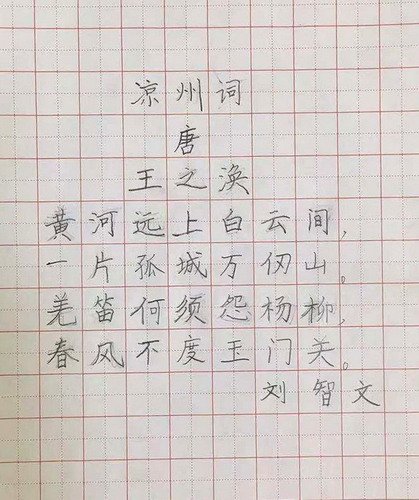 凉州词
唐
王之涣
黄河远上白云间，
一片孤城万仞山。
羌笛何须怨杨柳，
春风不度玉门关。
刘智文